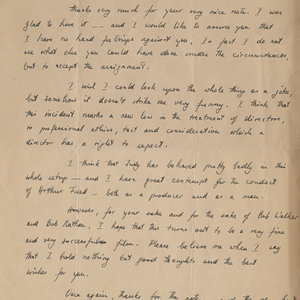 thanks very much for your very nice note. I was
glad to have it — and I would like to assure you that
I have no hard feelings against you. In fact I do not
see what else you could have done under the circumstances,
but to accept the assignment.
I wish I could look upon the whole thing as a joke,
but somehow it doesn't strike me very funny. I think that
this incident marks a new low in the treatment of directors,
in professional ethics, tact and consideration which a
director has a right to expect.
I think that Judy has behaved pretty badly in this
whole setup — and I have great contempt for the conduct
of Arthur Freed — both as a producer and as a man.
However, for your sake and for the sake of Bob Walker
and Bob Nathan, I hope that this turns out to be a very fine
and very successful film. Please believe me when I say
that I hold nothing but good thoughts and the best
wishes for you.
Once again, thanks for the note